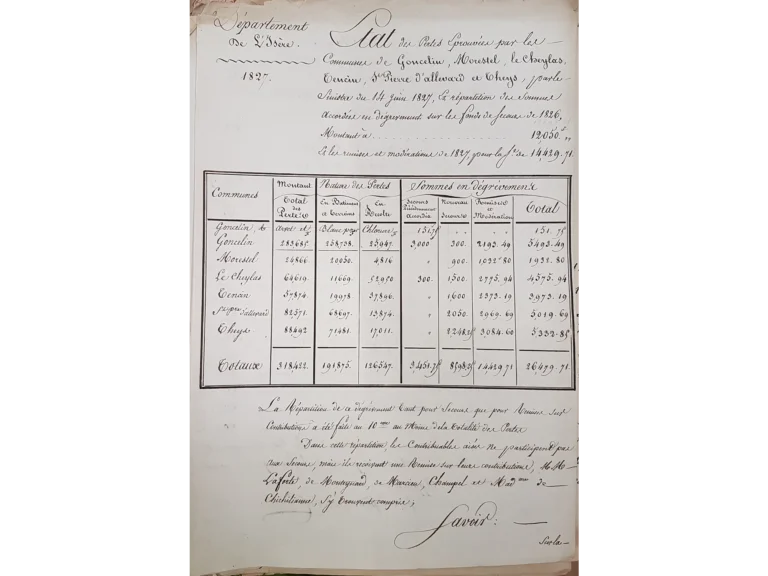 Département
De L'Isère.
1827.
Etat des Pertes Eprouvées par les
Communes de Goncelin, Morestel, le Cheylas,
Tencin, St Pierre d'allevard et Theys, par le
Sinistre du 14 Juin 1827, Et répartition des Sommes
accordées en dégrèvement sur les fonds de secours de 1826,
Montant à 12050.
Et les remises et modérations de 1827 pour la Se de 14429.71
Communes Montant Total des Pertes Nature des Pertes Sommes en dégrèvement
En Batimens et Terrains En Recolte Secours Précédemment Accordés Nouveaux Secours Remises et Modération Total
Goncelin, 151.75 151.75
Goncelin 25947. 3,000 300. 2193.49 5493.49
Morestel 24866 20050. 4816 " 900. 1,032.80 1932.80
Le Cheylas 64619 11669. 52950 300. 1500. 2775.94 4575.94
Tencin 57874. 19978 37896. " 1600 2373.19 3973.19
St Pierre d'allevard 82571. 68697. 13874. " 2050. 2969.69 5,019.69
Theys 88492 71481. 17,011. " 2248.25 3,084.60 5332.85
Totaux 318422. 191875. 126547. 3,451.75 8598.25 14429.71 26479.71
La Répartition de ce dégrèvement tant pour Secours que pour Remise sur
Contributions a été faite au 10me au Marc de la totalité des Pertes
Dans cette répartition, les Contribuables aisés ne participent pas
aux Secours, mais ils reçoivent une Remise sur leurs contributions, M.M.
de Marcieu, Champel et Mad me de
s'y trouvent compris,
Savoir:
Sur la